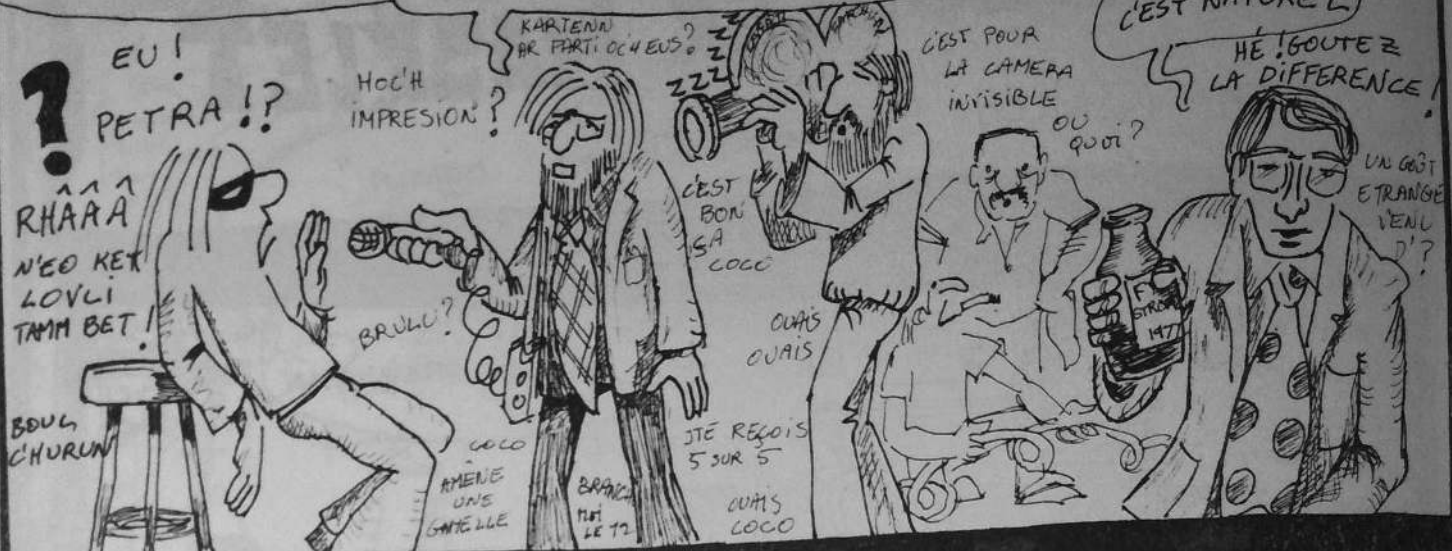 EU !
PETRA !?
?
RHÂÂÂ
N'EO KET
LOVLI
TAMM BET !
BOUG
C'HURUN
HOC'H
IMPRESION ?
BRULU ?
KARTENN
AR PARTI OC'H EUS ?
COCO
AMÈNE
UNE
GAMELLE
BRANCH
MOI
LE 12
Z
Z
Z
Z Z Z
C'EST
BON
ÇA
COCO
OUAIS
OUAIS
JTE REÇOIS
5 SUR 5
OUAIS
COCO
C'EST POUR
LA CAMERA
INVISIBLE
OU
QUOI ?
C'EST NATUREL
HÉ ! GOUTEZ
LA DIFFERENCE !
STRON
1977
UN GOÛT
ETRANGE
VENU
D' ?